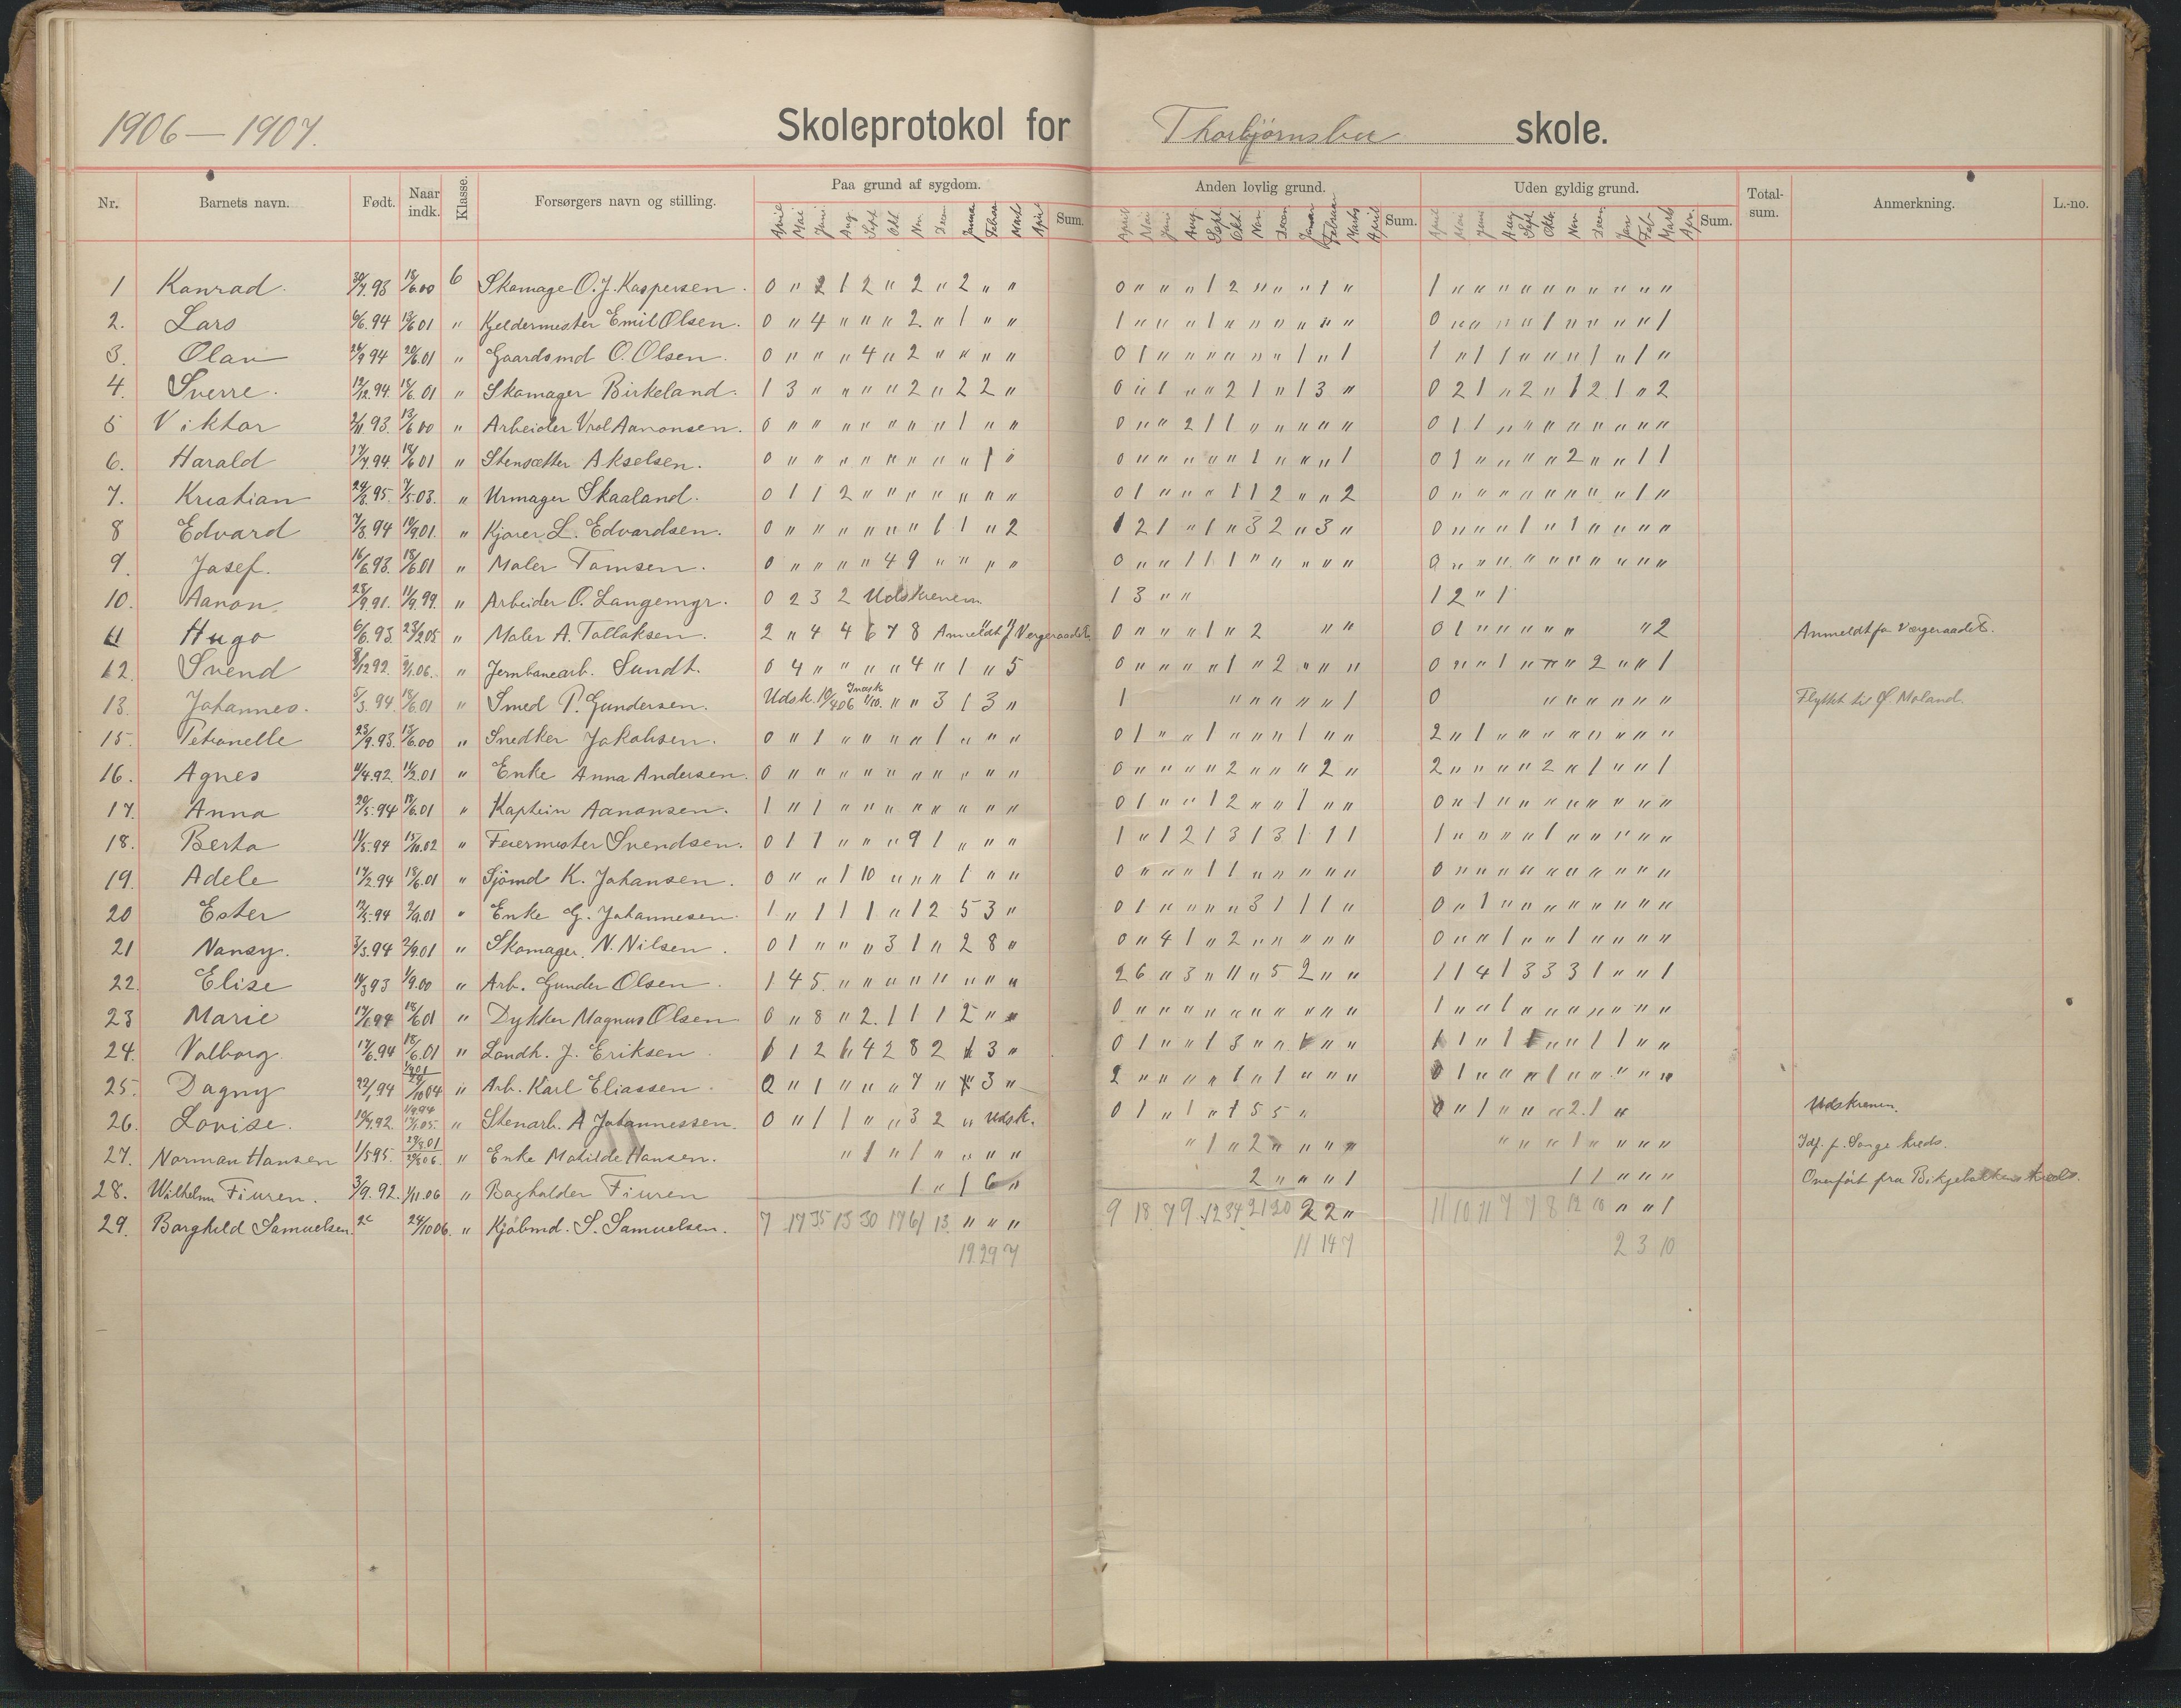 1906—1907.
Skoleprotokol for Thorbjørnsbu skole.
Nr. Barnets navn. Født. Naar indk. Klasse. Forsørgers navn og stilling. Paa grund af sygdom. Sum. Anden lovlig grund. Sum. Uden gyldig grund. Sum. Total-sum. Anmerkning. L.-no.
April Mai Juni Aug. Sept. Okt. Nov. Decm. Januar Februar Marts April
April Mai Juni Aug. Sept. Okt. Nov. Decm. Januar Februar Marts April
April Mai Juni Aug. Sept. Oktb. Nov. Decm. Jan. Feb. Marts Apr.
1 Konrad. 18/6.00 6 Skomage O. J. Kaspersen. 0 " 2 1 2 " 2 " 2 " " 0 " " " 1 2 " " " 1 " 1 " " " " " " " " " "
2. Lars 6/6.94 13/6 01 " Kjeldermester Emil Olsen. 0 " 4 " " " 2. " 1 " " 1 " " " 1 " " " " " " 0 " " " " 1 " " " " 1
3. Olav 26/9 94 20/6.01 " Gaardsmd O. Olsen. 0 " " " 4 " 2 " " " " 0 1 " " " " " " 1 " 1 1 " 1 1 " " " 1 " 1 "
4. Sverre. 19/12.94. 18/6.01 " Skomager Birkeland. 1 3 " " " " 2 " 2 2 " 0 " 1 " " 2 1 " 1 3 " 0 2 1 " 2 " 1 2 1 " 2
5 Viktor 2/11 93. 13/6 00 " Arbeider Vrol Aanonsen. 0 " " " " " " " 1 " " 0 " " 2 1 1 " " " " " 0 1 1 " " " " " " " "
6. Harald 17/7.94. 18/6 01 " Stensætter Akselsen. 0 " " " " " " " " 1 " 0 " " " " " 1 " " " 1 0 1 " " " " 2 " " 1 1
7. Kristian 7/5.03. " Urmager Skaaland. 0 1 1 2 " " " " " " " 0 1 " " " 1 1 2 " " 2 0 " " " " " " " " 1 "
8 Edvard 7/3.94 10/9.01. " Kjører L. Edvardsen. 0 " " " " " " 1 1 " 2 1 2 1 " 1 " 3 2 " 3 " 0 " " " 1 " 1 " " " "
9. Josef. 16/6.93. 18/6.01 " Maler Tomsen. 0 " " " " 4 9 " " " " 0 " " 1 1 1 " " " " " 0 " " " " " " " " " "
10. Aanon. 28/9.91. 11/9.99. " Arbeider O. Langemyr. 0 2 3 2 Udskreven 1 3 " " 1 2 " 1
11 Hugo 6/6.93 23/2 05 " Maler A. Tallaksen. 2 " 4 4 6 7 8 Anmeldt f Vergeraadet 0 " " " 1 " 2 " " 0 1 " " " " " " 2 Anmeldt for Værgeraadet.
12. Svend 1/1.06. " Jernbanearb. Sundt. 0 4 " " " " 4 " 1 " 5 0 " " " " 1 " 2 " " " 0 " " 1 " " " 2 " " 1
13. Johannes. 5/3.94. 18/6.01 " Smed P. Gundersen. Udsk. 10/4 06 Indsk 1/10. " " 3 1 3 " 1 " " " " " 1 0 " " " " " " Flyttet til Ø. Moland.
15. Petronelle 23/9.93. 13/6.00 " Snedker Jakobsen. 0 " 1 " " " " 1 " " " 0 1 " " 1 " " " 1 " " 2 " 1 " " " " " " " "
16. Agnes 11/4.92. 11/2.01 " Enke Anna Andersen. 0 " " " " " " " " " " 0 " " " " 2 " " " 2 " 2 " " " " 2 " 1 " " 1
17. Anna 20/5.94 18/6.01 " Kaptein Aanonsen. 1 " 1 " " " " " " " " 0 1 " " 1 2 " " 1 " " 0 " 1 " " " " " " " "
18. Berta 11/5.94 15/10.02 " Feiermester Svendsen. 0 1 1 " " " 9 1 " " " 1 " 1 2 1 3 1 3 1 1 1 1 " " " " 1 " " " " "
19. Adele 17/2.94 18/6.01 " Sjömd K. Johansen. 0 " " 1 10 " " " 1 " " 0 " " " 1 1 " " " " " 0 " " " " " " " " " "
20 Ester 12/5.94 2/9.01 " Enke G. Johannesen. 1 " 1 1 1 " 1 2 5 3 " 0 1 " " " " 3 1 1 1 " 0 " 1 " " " " " " " "
21 Nansy. 3/3.94 2/9.01 " Skomager. N. Nilsen. 0 1 " " " 3 1 " 2 8 " 0 " 4 1 " 2 " " " " " 0 " " 1 " " 1 " " " "
22. Elise 1/9.00 " Arb. Gunder Olsen. 1 4 5. " " " " " " " " 2 6 " 3 " 11 " 5 2 " " 1 1 4 1 3 3 3 1 " " 1
23 Marie 18/6 01 " Dykker Magnus Olsen 0 " 8 " 2. 1 1 1 2 " " 0 " " " " " " " " " " 1 " " 1 " " " " " " "
24. Valborg. 17/6.94 18/6.01 " Landh. J. Eriksen. 1 2 4 2 8 2 3 " 0 1 " " 1 3 " " " " 1 1 " 1 " " 1 1 " "
25. Dagny 22/1 94 " Arb. Karl Eliassen. 2 " 1 " " " 7 " 3 " 2 " " " " 1 " 1 " " " 1 " " " 1 " " " " "
26. Lovise. " Stenarb. A Johannessen. 0 " 1 1 " " 3 2 " Udsk. 0 1 " 1 " 1 5 5 " 0 " 1 " " " 2. 1 " Udskreven.
27. Norman Hansen 1/5 95. " Enke Matilde Hansen. " 1 " 1 " " " " " 1 " 2 " " " " " " " 1 " " " " Idf. f. Songe kreds.
28. Wilhelm Fiuren. 3/9.92. 1/11.06 " Bogholder Fiuren 1 " 1 6 " 2 " " " 1 1 1 " " " Overført fra Birkjebækkens kreds.
29. Borghild Samuelsen. 24/10 06. " Kjøbmd. S. Samuelsen. 7 17 35 15 30 17 61 13 " " " 9 18 7 9 12 34 21 20 2 2 " 11 10 11 7 7 8 12 10 " " 1
19 29 7 11 14 7 2 3 10